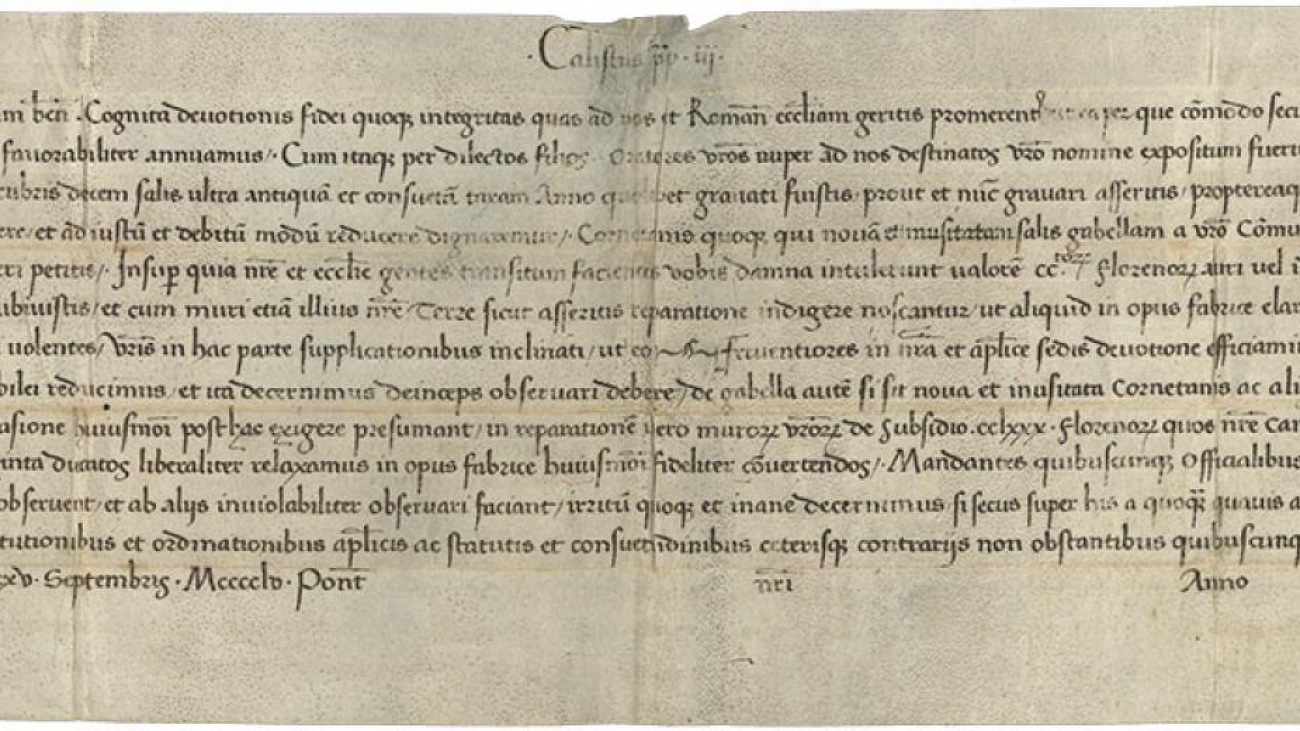 · Calistus pp · iij ·
Cognita devotionis fidei quoqꝫ integritas quas ad vos et Romañ ecclīam geritis promerent que cōmodo
favorabiliter annuamus /· Cum itaqꝫ per dilectos filios Oratores vrōs nuper ad nos destinatos vrō nomine expositum
decem salis ultra antiquā et consuetā taxam Anno gravati fuistis / prout et nūc gravari asseritis /
et ad iustū et debitū modū reducere dignaremur /· quoqꝫ qui novā et inusitatam salis gabellam a vrō
petitis /· Insuꝑ quia nrē et ecclīe gentes transitum facientes vobis damna intulerunt valorē ccᵗᵒʳ Florenoꝝ auri vel
et cum muri etiā illius nrē / Terre sicut asseritis reparatione indigere noscantur / ut aliquid in opus fabrice
volentes / vrīs in hac parte supplicationibus inclinati / ut ferventiores in nrā et aplīce sedis devotione
reducimus / et ita decernimus deinceps observari debere / de gabella autē si sit nova et inusitata Cornetanis ac
huiusmōi posthac exigere presumant / in reparationē vero muroꝝ vrōꝝ de subsidio · cclxxx · Florenoꝝ quos nrē
ducatos liberaliter relaxamus in opus fabrice huiusmōi fideliter cōvertendos /· Mandantes quibuscunqꝫ
observent / et ab alijs inviolabiliter observari faciant / irritū quoqꝫ et inane decernimus si secus super his a
et ordinationibus aplīcis ac statutis et consuetudinibus ceterisqꝫ contrarijs non obstantibus
Septembris · Mcccclv · Pont̄ nr̄i Anno